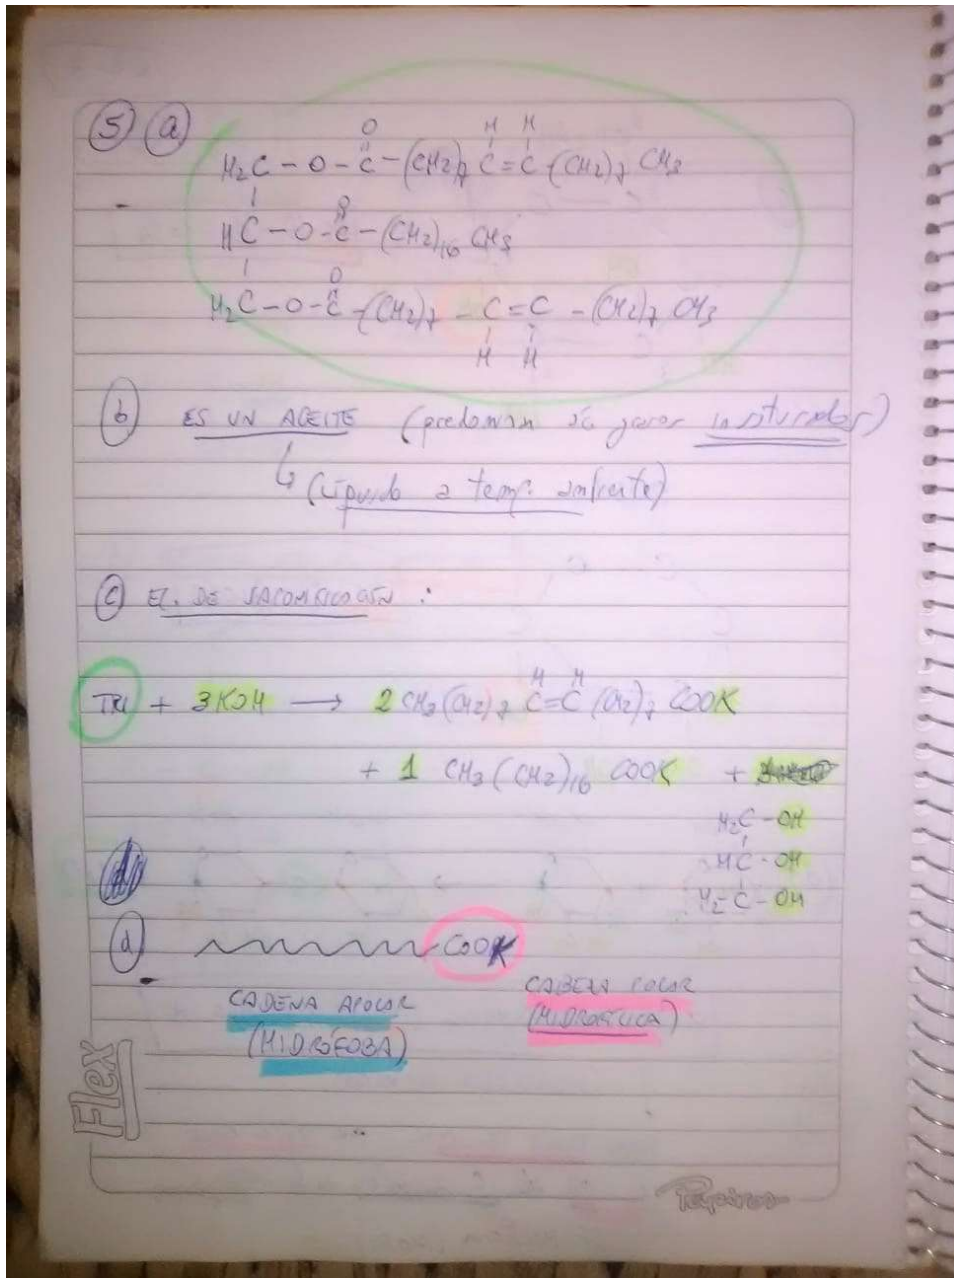 5 a
O H H
H₂C - O - C - (CH₂)₇ C = C - (CH₂)₇ CH₃
O
HC - O - C - (CH₂)₁₆ CH₃
O
H₂C - O - C - (CH₂)₇ - C = C - (CH₂)₇ CH₃
H H
b ES UN ACEITE (predominan ác grasos insaturados)
↳ (Líquido a temp. ambiente)
c EC. DE SAPONIFICACIÓN :
H H
TRI + 3KOH → 2 CH₃ (CH₂)₇ C = C (CH₂)₇ COOK
+ 1 CH₃ (CH₂)₁₆ COOK +
H₂C - OH
HC - OH
H₂C - OH
d COOK
CADENA APOLAR CABEZA POLAR
(HIDRÓFOBA) (HIDROFÍLICA)
Flex